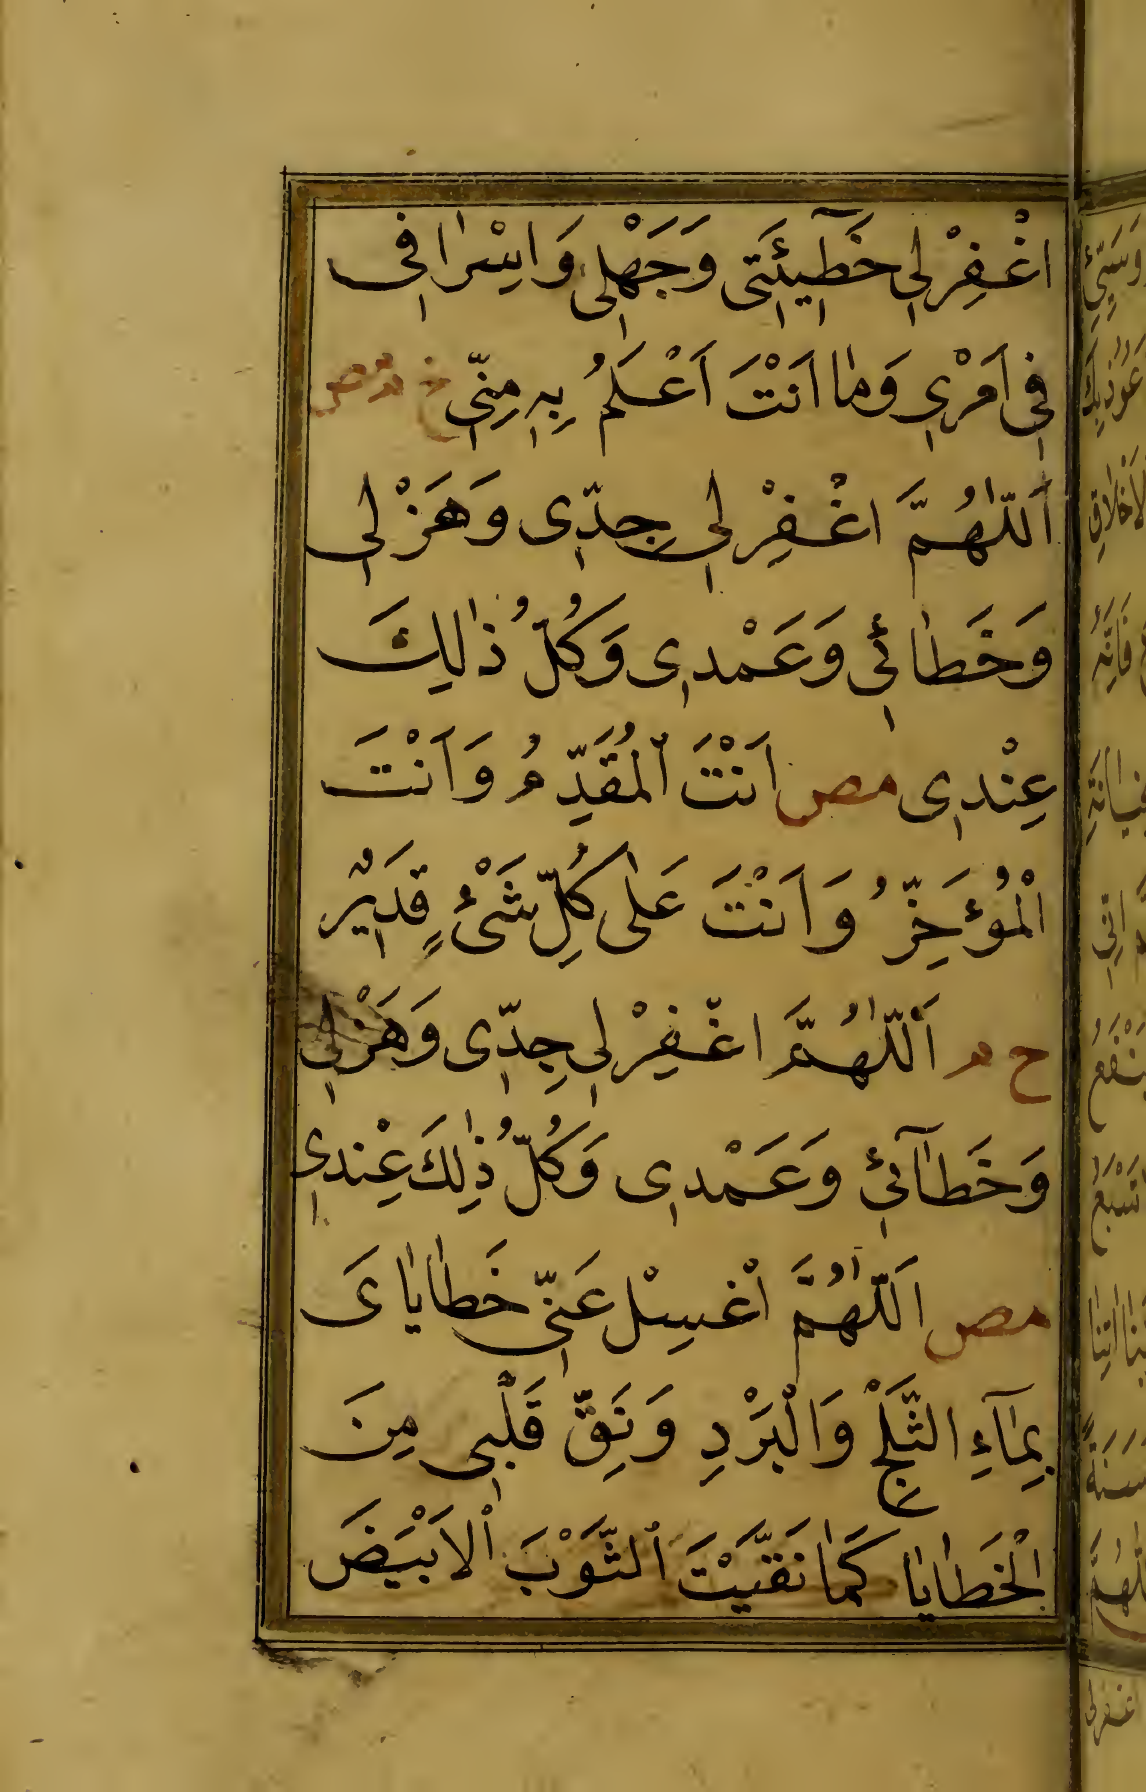 اغْفِرْ لِي خَطِيئَتِي وَجَهْلِي وَاِسْرَافِي
فِي اَمْرِي وَمَا اَنْتَ اَعْلَمُ بِهِ مِنِّي خ م مص
اَللّٰهُمَّ اغْفِرْ لِي جِدِّي وَهَزْلِي
وَخَطَائِي وَعَمْدِي وَكُلُّ ذٰلِكَ
عِنْدِي مص اَنْتَ الْمُقَدِّمُ وَاَنْتَ
الْمُؤَخِّرُ وَاَنْتَ عَلٰى كُلِّ شَيْءٍ قَدِيْرٌ
خ م اَللّٰهُمَّ اغْفِرْ لِي جِدِّي وَهَزْلِي
وَخَطَآئِي وَعَمْدِي وَكُلُّ ذٰلِكَ عِنْدِي
مص اَللّٰهُمَّ اغْسِلْ عَنِّي خَطَايَايَ
بِمَآءِ الثَّلْجِ وَالْبَرَدِ وَنَقِّ قَلْبِي مِنَ
الْخَطَايَا كَمَا نَقَّيْتَ الثَّوْبَ الْاَبْيَضَ